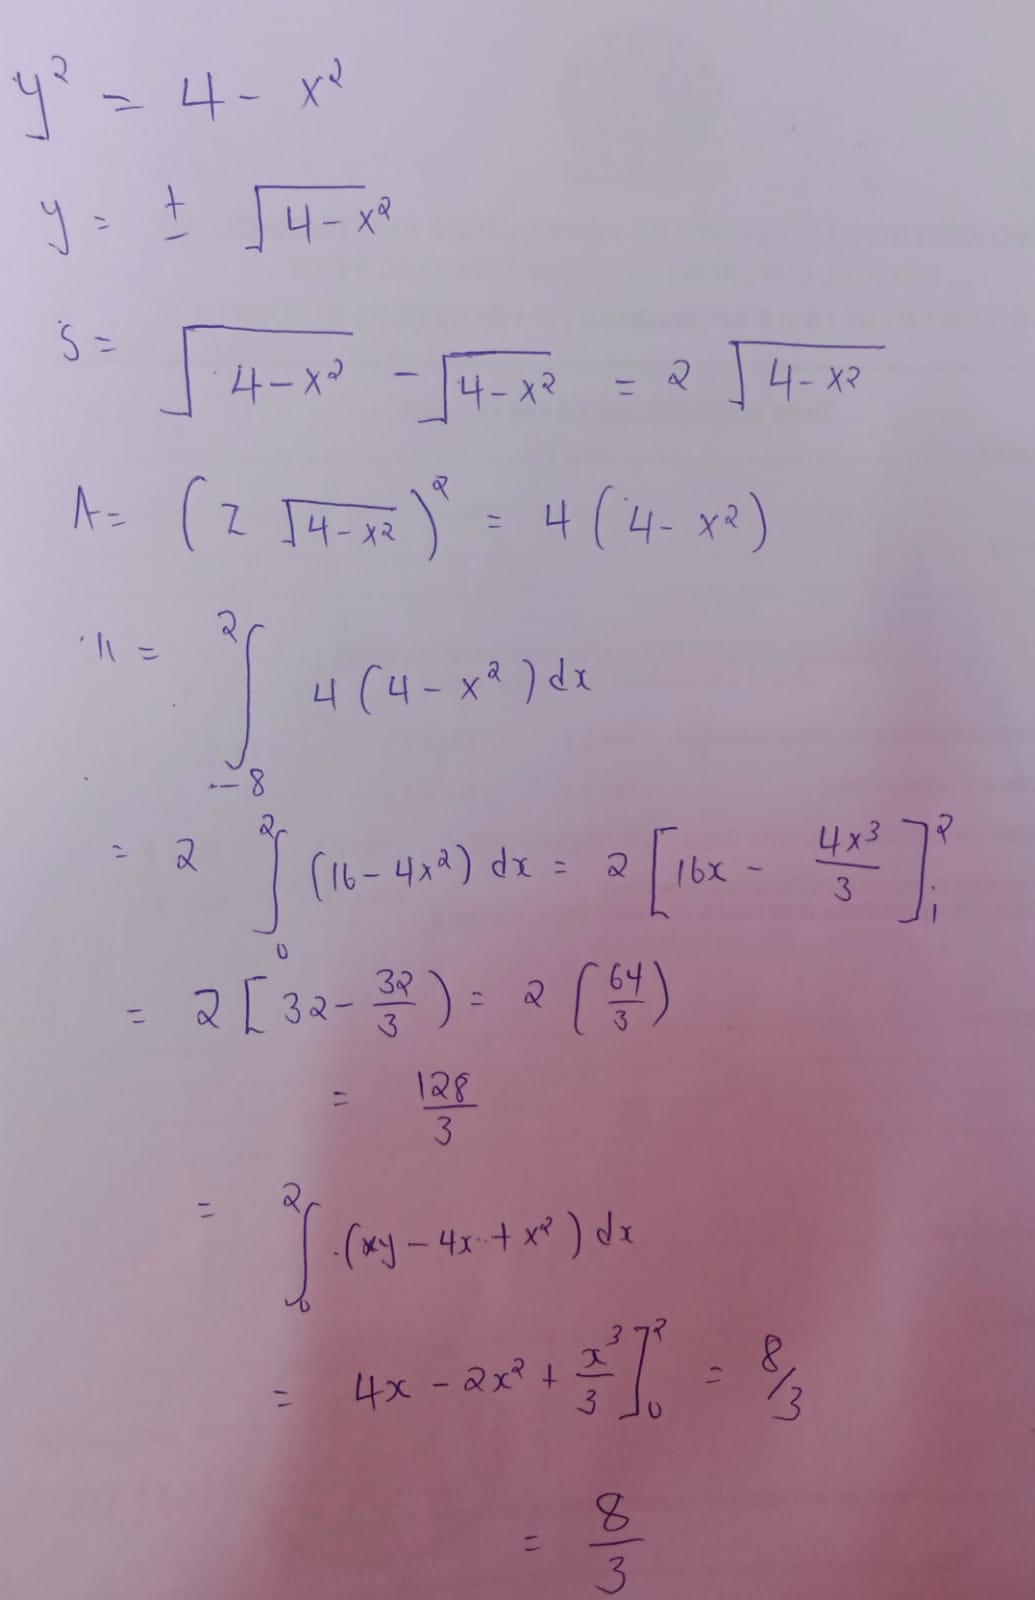 y² = 4 - x²
y = ± √(4-x²)
S = √(4-x²) - √(4-x²) = 2 √(4-x²)
A = (2 √(4-x²))² = 4 (4- x²)
11 = ∫_{-8}^{2} 4 (4 - x²) dx
= 2 ∫_{0}^{2} (16 - 4x²) dx = 2 [16x - 4x³/3]_{1}^{2}
= 2 [32 - 32/3) = 2 (64/3)
= 128/3
= ∫_{0}^{2} (xy - 4x + x²) dx
= 4x - 2x² + x³/3]_{0}^{2} = 8/3
= 8/3